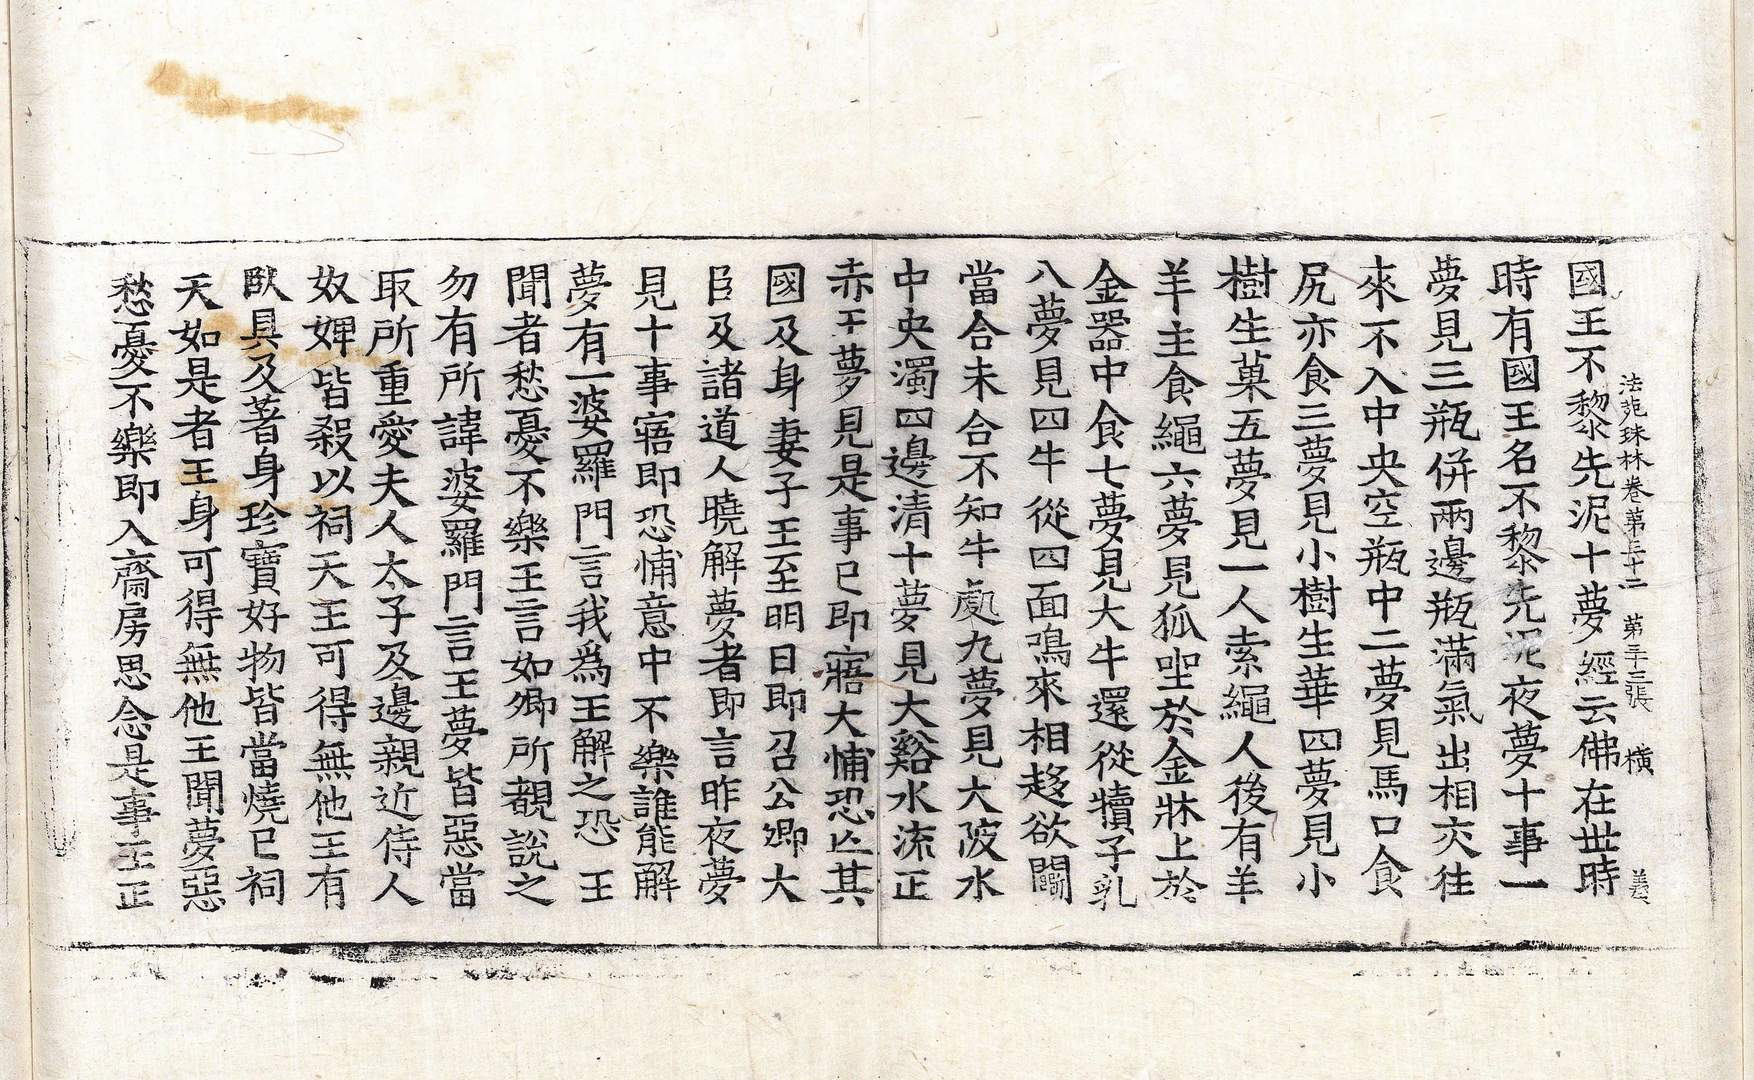 法苑珠林卷第三十二 第三十三張 橫 義
國王不黎先泥十夢經云佛在世時
時有國王名不黎先泥夜夢十事一
夢見三瓶併兩邊瓶滿氣出相交往
來不入中央空瓶中二夢見馬口食
尻亦食三夢見小樹生華四夢見小
樹生菓五夢見一人索繩人後有羊
羊主食繩六夢見狐坐於金牀上於
金器中食七夢見大牛還從犢子乳
八夢見四牛從四面鳴來相趍欲鬭
當合未合不知牛處九夢見大陂水
中央濁四邊清十夢見大谿水流正
赤王夢見是事已即寤大怖恐亡其
國及身妻子王至明日即召公卿大
臣及諸道人曉解夢者即言昨夜夢
見十事寤即恐怖意中不樂誰能解
夢有一婆羅門言我為王解之恐王
聞者愁憂不樂王言如卿所覩說之
勿有所諱婆羅門言王夢皆惡當
取所重愛夫人太子及邊親近侍人
奴婢皆殺以祠天王可得無他王有
臥具及著身珍寶好物皆當燒已祠
天如是者王身可得無他王聞夢惡
愁憂不樂即入齋房思念是事王正